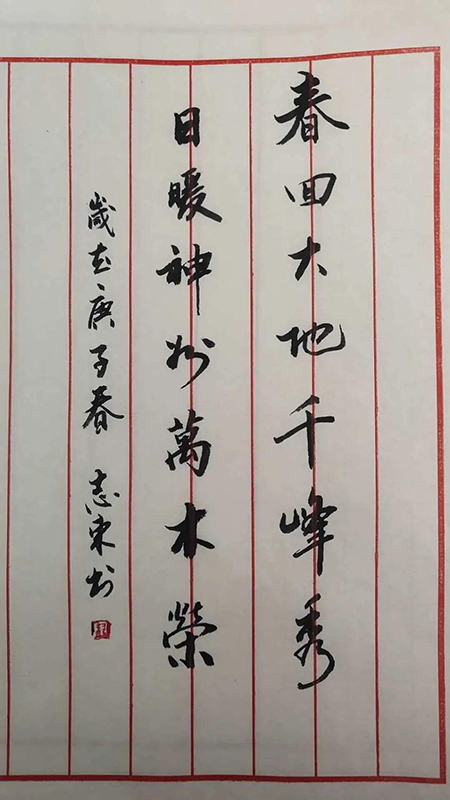 春回大地千峰秀
日暖神州萬木榮
歲在庚子春 志東书